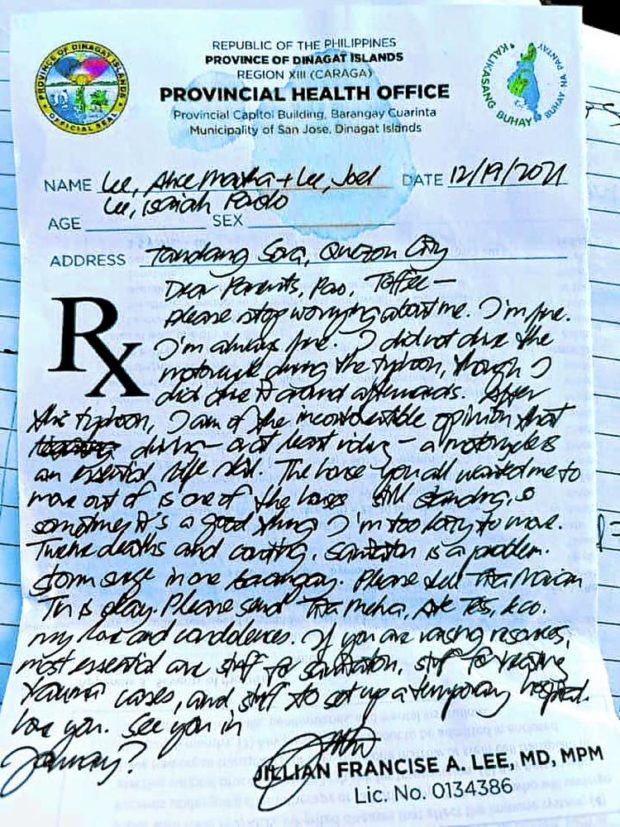 REPUBLIC OF THE PHILIPPINES
PROVINCE OF DINAGAT ISLANDS
REGION XIII (CARAGA)
PROVINCIAL HEALTH OFFICE
Provincial Capitol Building, Barangay Cuarinta
Municipality of San Jose, Dinagat Islands
PROVINCE OF DINAGAT ISLANDS
OFFICIAL SEAL
KALIKASANG BUHAY
BUHAY NA PANTAY
NAME Lee, Alice Martha + Lee, Joel DATE 12/19/2021
Lee, Isaiah Paolo
AGE SEX
ADDRESS Tandang Sora, Quezon City
Rx
Dear Parents, Pao, Toffee —
Please stop worrying about me. I'm fine.
I'm always fine. I did not drive the
motorcycle during the typhoon, though I
did drive it around afterwards. After
this typhoon, I am of the incontrovertible opinion that
driving — or at least riding — a motorcycle is
an essential life skill. The house you all wanted me to
move out of is one of the houses still standing, so
sometimes it's a good thing I'm too lazy to move.
Twelve deaths and counting, sanitation is a problem.
Storm surge in one barangay. Please tell Tita Marian
is okay. Please send Tita Ate Tess, & co.
my love and condolences. If you are raising resources,
most essential are stuff for sanitation, stuff for
trauma cases, and stuff to set up a temporary hospital.
Love you. See you in
January?
JILLIAN FRANCISE A. LEE, MD, MPM
Lic. No. 0134386